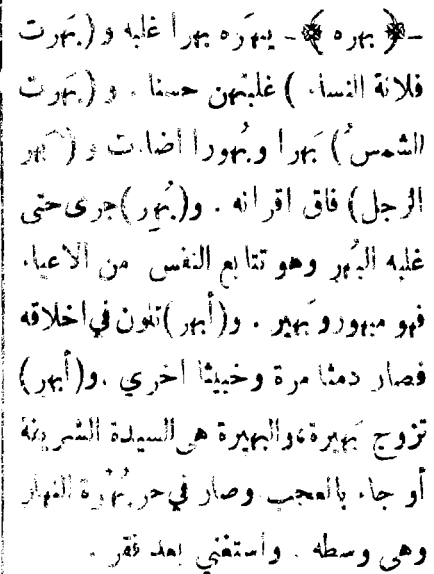 ﴿ بهره ﴾ يبهَره بهرا غلبه و (بَهرت
فلانة النساء ) غلبتهن حسنا . و (بَهرت
الشمسُ ) بَهرا وبُهورا اضاءت و (بَهر
الرجل) فاق اقرانه . و(بُهِر)جرى حتى
غلبه البُهر وهو تتابع النفس من الاعياء
فهو مبهور وبَهير . و(أبهر)تلون في اخلاقه
فصار دمثا مرة وخبيثا اخري .و(أبهر)
تزوج بَهيرة،والبهيرة هي السيدة الشريفة
أو جاء بالعجب وصار في حر بُهْرة النهار
وهى وسطه . واستغني بعد فقر .